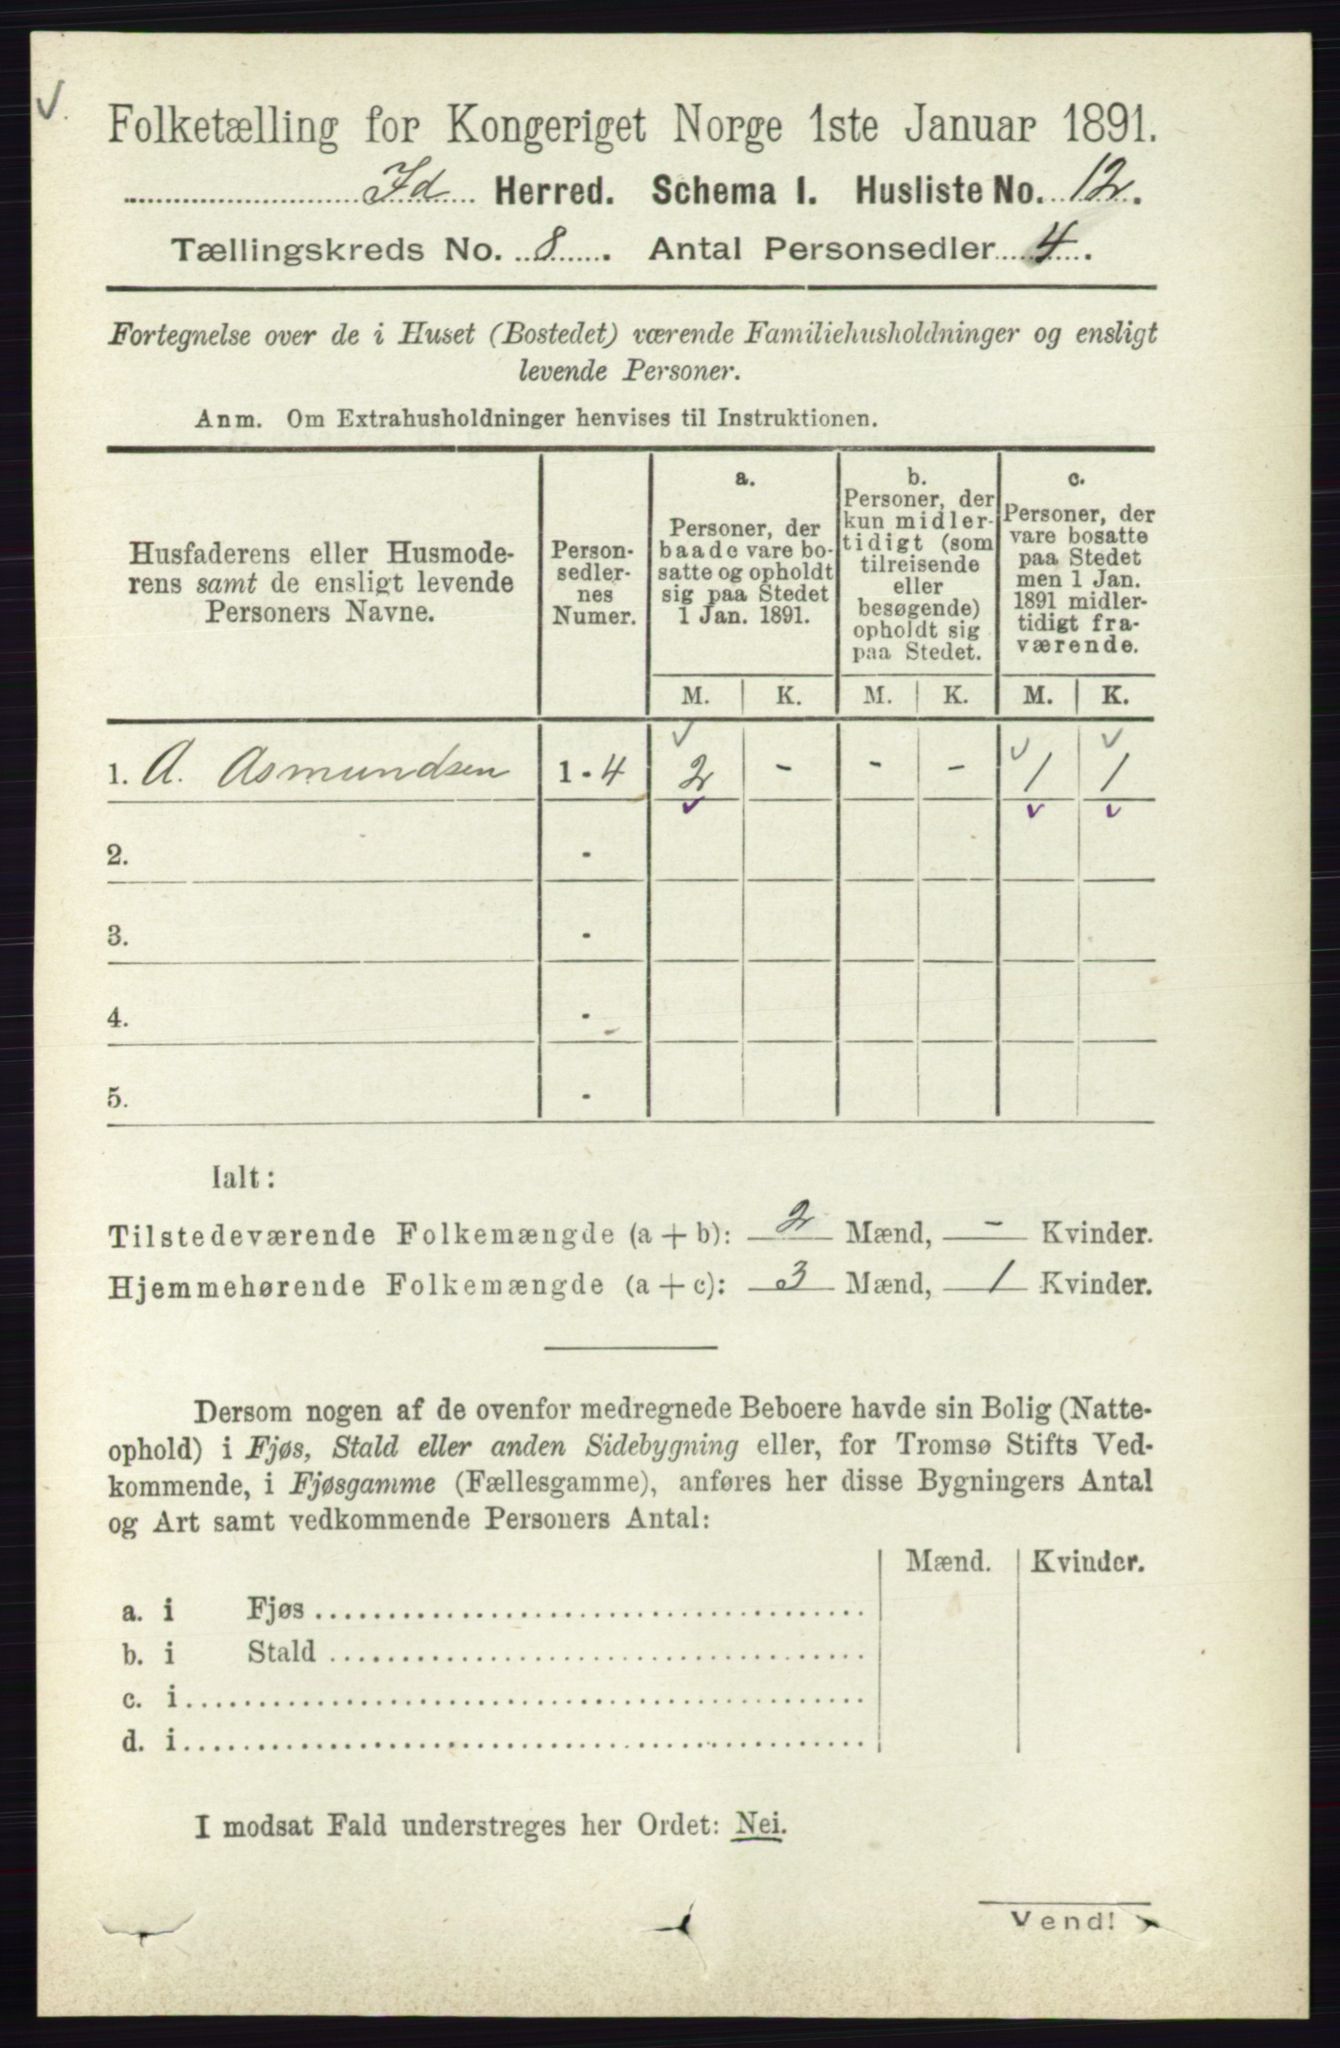 Folketælling for Kongeriget Norge 1ste Januar 1891.
Id Herred. Schema I. Husliste No. 12.
Tællingskreds No. 8. Antal Personsedler 4.
Fortegnelse over de i Huset (Bostedet) værende Familiehusholdninger og ensligt
levende Personer.
Anm. Om Extrahusholdninger henvises til Instruktionen.
Husfaderens eller Husmode-
rens samt de ensligt levende
Personers Navne.
Person-
sedler-
nes
Numer.
a.
Personer, der
baade vare bo-
satte og opholdt
sig paa Stedet
1 Jan. 1891.
b.
Personer, der
kun midler-
tidigt (som
tilreisende
eller
besøgende)
opholdt sig
paa Stedet.
c.
Personer, der
vare bosatte
paa Stedet
men 1 Jan.
1891 midler-
tidigt fra-
værende.
M. K. M. K. M. K.
1. A. Asmundsen 1 - 4 2 - - - 1 1
2. -
3. -
4. -
5. -
Ialt:
Tilstedeværende Folkemængde (a + b): 2 Mænd, - Kvinder.
Hjemmehørende Folkemængde (a + c): 3 Mænd, 1 Kvinder.
Dersom nogen af de ovenfor medregnede Beboere havde sin Bolig (Natte-
ophold) i Fjøs, Stald eller anden Sidebygning eller, for Tromsø Stifts Ved-
kommende, i Fjøsgamme (Fællesgamme), anføres her disse Bygningers Antal
og Art samt vedkommende Personers Antal:
Mænd. Kvinder.
a. i Fjøs
b. i Stald
c. i
d. i
I modsat Fald understreges her Ordet: Nei.
Vend!